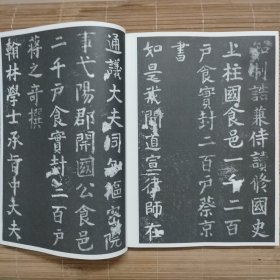 知制誥兼侍讀修國史
上柱國食邑一千二百
戶食實封二百戶蔡京
書
如是我聞道宣律師在
通議大夫同知樞密院
事弋陽郡開國公食邑
二千戶食實封三百戶
蔣之奇撰
翰林學士承旨中大夫